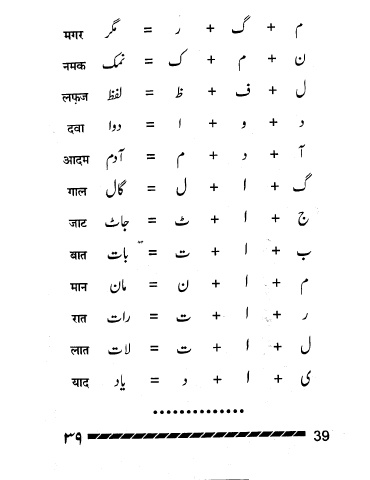 م + گ + ر = مگر मगर
ن + م + ک = نمک नमक
ل + ف + ظ = لفظ लफ़ज
د + و + ا = دوا दवा
آ + د + م = آدم आदम
گ + ا + ل = گال गाल
ج + ا + ٹ = جاٹ जाट
ب + ا + ت = بات बात
م + ا + ن = مان मान
ر + ا + ت = رات रात
ل + ا + ت = لات लात
ی + ا + د = یاد याद
۳۹ 39